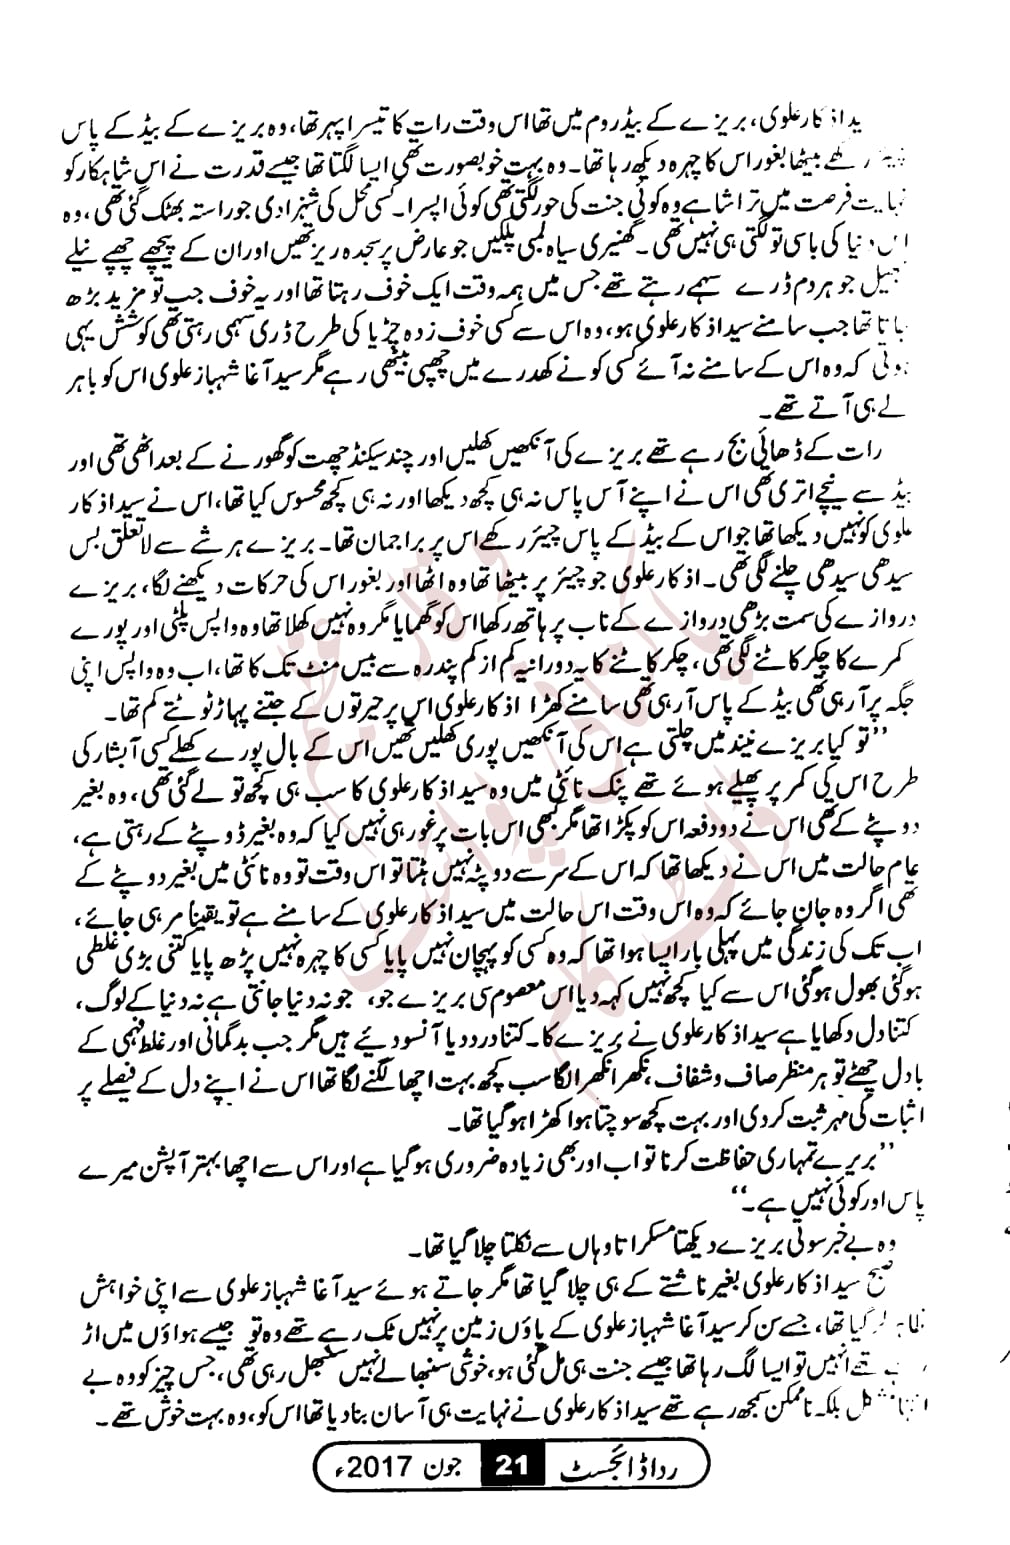 ید اذکار علوی، بریزے کے بیڈ روم میں تھا اس وقت رات کا تیسرا پہر تھا، وہ بریزے کے بیڈ کے پاس
رکھے بیٹھا بغور اس کا چہرہ دیکھ رہا تھا۔ وہ بہت خوبصورت تھی ایسا لگتا تھا جیسے قدرت نے اس شاہکار کو
نہایت فرصت میں تراشا ہے وہ کوئی جنت کی حور لگتی تھی کوئی اپسرا۔ کسی محل کی شہزادی جو راستہ بھٹک گئی تھی، وہ
اس دنیا کی باسی تو لگتی ہی نہیں تھی۔ گھنیری سیاہ لمبی پلکیں جو عارض پر سجدہ ریز تھیں اور ان کے پیچھے چھپے نیلے
جھیل جو ہر دم ڈرے سہمے رہتے تھے جس میں ہمہ وقت ایک خوف رہتا تھا اور یہ خوف جب تو مزید بڑھ
جاتا تھا جب سامنے سید اذکار علوی ہو، وہ اس سے کسی خوف زدہ چڑیا کی طرح ڈری سہمی رہتی تھی کوشش یہی
ہوتی کہ وہ اس کے سامنے نہ آئے کسی کونے کھدرے میں چھپی بیٹھی رہے مگر سید آغا شہباز علوی اس کو باہر
لے ہی آتے تھے۔
رات کے ڈھائی بج رہے تھے بریزے کی آنکھیں کھلیں اور چند سیکنڈ چھت کو گھورنے کے بعد اٹھی تھی اور
بیڈ سے نیچے اتری تھی اس نے اپنے آس پاس نہ ہی کچھ دیکھا اور نہ ہی کچھ محسوس کیا تھا، اس نے سید اذکار
علوی کو نہیں دیکھا تھا جو اس کے بیڈ کے پاس چیئر رکھے اس پر براجمان تھا۔ بریزے ہر شے سے لاتعلق بس
سیدھی سیدھی چلنے لگی تھی۔ اذکار علوی جو چیئر پر بیٹھا تھا وہ اٹھا اور بغور اس کی حرکات دیکھنے لگا، بریزے
دروازے کی سمت بڑھی دروازے کے ناب پر ہاتھ رکھا اس کو گھمایا مگر وہ نہیں کھلا تھا وہ واپس پلٹی اور پورے
کمرے کا چکر کاٹنے لگی تھی، چکر کاٹنے کا یہ دورانیہ کم از کم پندرہ سے بیس منٹ تک کا تھا، اب وہ واپس اپنی
جگہ پر آ رہی تھی بیڈ کے پاس آ رہی تھی سامنے کھڑا اذکار علوی اس پر حیرتوں کے جتنے پہاڑ ٹوٹتے کم تھا۔
’’تو کیا بریزے نیند میں چلتی ہے اس کی آنکھیں پوری کھلیں تھیں اس کے بال پورے کھلے کسی آبشار کی
طرح اس کی کمر پر پھیلے ہوئے تھے پنک نائٹی میں وہ سید اذکار علوی کا سب ہی کچھ تو لے گئی تھی، وہ بغیر
دوپٹے کے تھی اس نے دو دفعہ اس کو پکڑا تھا مگر کبھی اس بات پر غور ہی نہیں کیا کہ وہ بغیر دوپٹے کے رہتی ہے،
عام حالت میں اس نے دیکھا تھا کہ اس کے سر سے دوپٹہ نہیں ہٹتا تو اس وقت تو وہ نائٹی میں بغیر دوپٹے کے
تھی اگر وہ جان جائے کہ وہ اس وقت اس حالت میں سید اذکار علوی کے سامنے ہے تو یقینا مر ہی جائے،
اب تک کی زندگی میں پہلی بار ایسا ہوا تھا کہ وہ کسی کو پہچان نہیں پایا کسی کا چہرہ نہیں پڑھ پایا کتنی بڑی غلطی
ہوگئی بھول ہوگئی اس سے کیا کچھ نہیں کہہ دیا اس معصوم سی بریزے جو، جو نہ دنیا جانتی ہے نہ دنیا کے لوگ،
کتنا دل دکھایا ہے سید اذکار علوی نے بریزے کا۔ کتنا درد دیا آنسو دیئے ہیں مگر جب بدگمانی اور غلط فہمی کے
بادل چھٹے تو ہر منظر صاف و شفاف، نکھرا نکھرا لگا سب کچھ بہت اچھا لگنے لگا تھا اس نے اپنے دل کے فیصلے پر
اثبات کی مہر ثبت کر دی اور بہت کچھ سوچتا ہوا کھڑا ہو گیا تھا۔
’’بریرے تمہاری حفاظت کرنا تو اب اور بھی زیادہ ضروری ہو گیا ہے اور اس سے اچھا بہتر آپشن میرے
پاس اور کوئی نہیں ہے۔‘‘
وہ بے خبر سوئی بریزے دیکھتا مسکراتا وہاں سے نکلتا چلا گیا تھا۔
صبح سید اذکار علوی بغیر ناشتے کے ہی چلا گیا تھا مگر جاتے ہوئے سید آغا شہباز علوی سے اپنی خواہش
ظاہر کر گیا تھا، جسے سن کر سید آغا شہباز علوی کے پاؤں زمین پر نہیں ٹک رہے تھے وہ تو جیسے ہواؤں میں اڑ
تھے انہیں تو ایسا لگ رہا تھا جیسے جنت ہی مل گئی ہو، خوشی سنبھالے نہیں سنبھل رہی تھی، جس چیز کو وہ بے
انتہا مشکل بلکہ ناممکن سمجھ رہے تھے سید اذکار علوی نے نہایت ہی آسان بنا دیا تھا اس کو، وہ بہت خوش تھے۔
ردا ڈائجسٹ 21 جون 2017ء